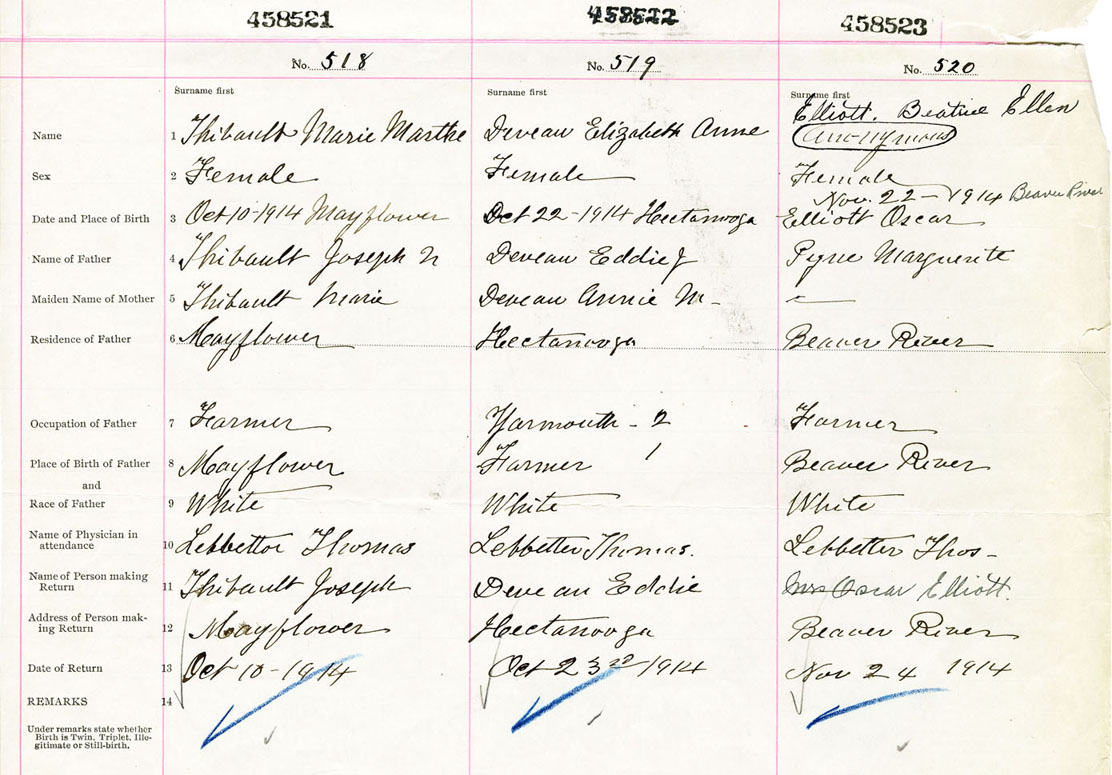 458521 458522 458523
No. 518 No. 519 No. 520
Surname first Surname first Surname first
Elliott. Beatrice Ellen
Name 1 Thibault Marie Marthe Deveau Elizabeth Anne
Sex 2 Female Female Female
Nov. 22 - 1914 Beaver River
Date and Place of Birth 3 Oct 10-1914 Mayflower Oct 22-1914 Hectanooga Elliott Oscar
Name of Father 4 Thibault Joseph N Deveau Eddie J Pyne Marguerite
Maiden Name of Mother 5 Thibault Marie Deveau Annie M- —
Residence of Father 6 Mayflower Hectanooga Beaver River
Occupation of Father 7 Farmer Yarmouth - 2 Farmer
Place of Birth of Father 8 Mayflower Farmer 1 Beaver River
and
Race of Father 9 White White White
Name of Physician in
attendance 10 Lebbetter Thomas Lebbetter Thomas. Lebbetter Thos-
Name of Person making
Return 11 Thibault Joseph Deveau Eddie Mrs Oscar Elliott.
Address of Person mak-
ing Return 12 Mayflower Hectanooga Beaver River
Date of Return 13 Oct 10-1914 Oct 23rd 1914 Nov 24 1914
REMARKS 14
Under remarks state whether
Birth is Twin, Triplet, Ille-
gitimate or Still-birth.